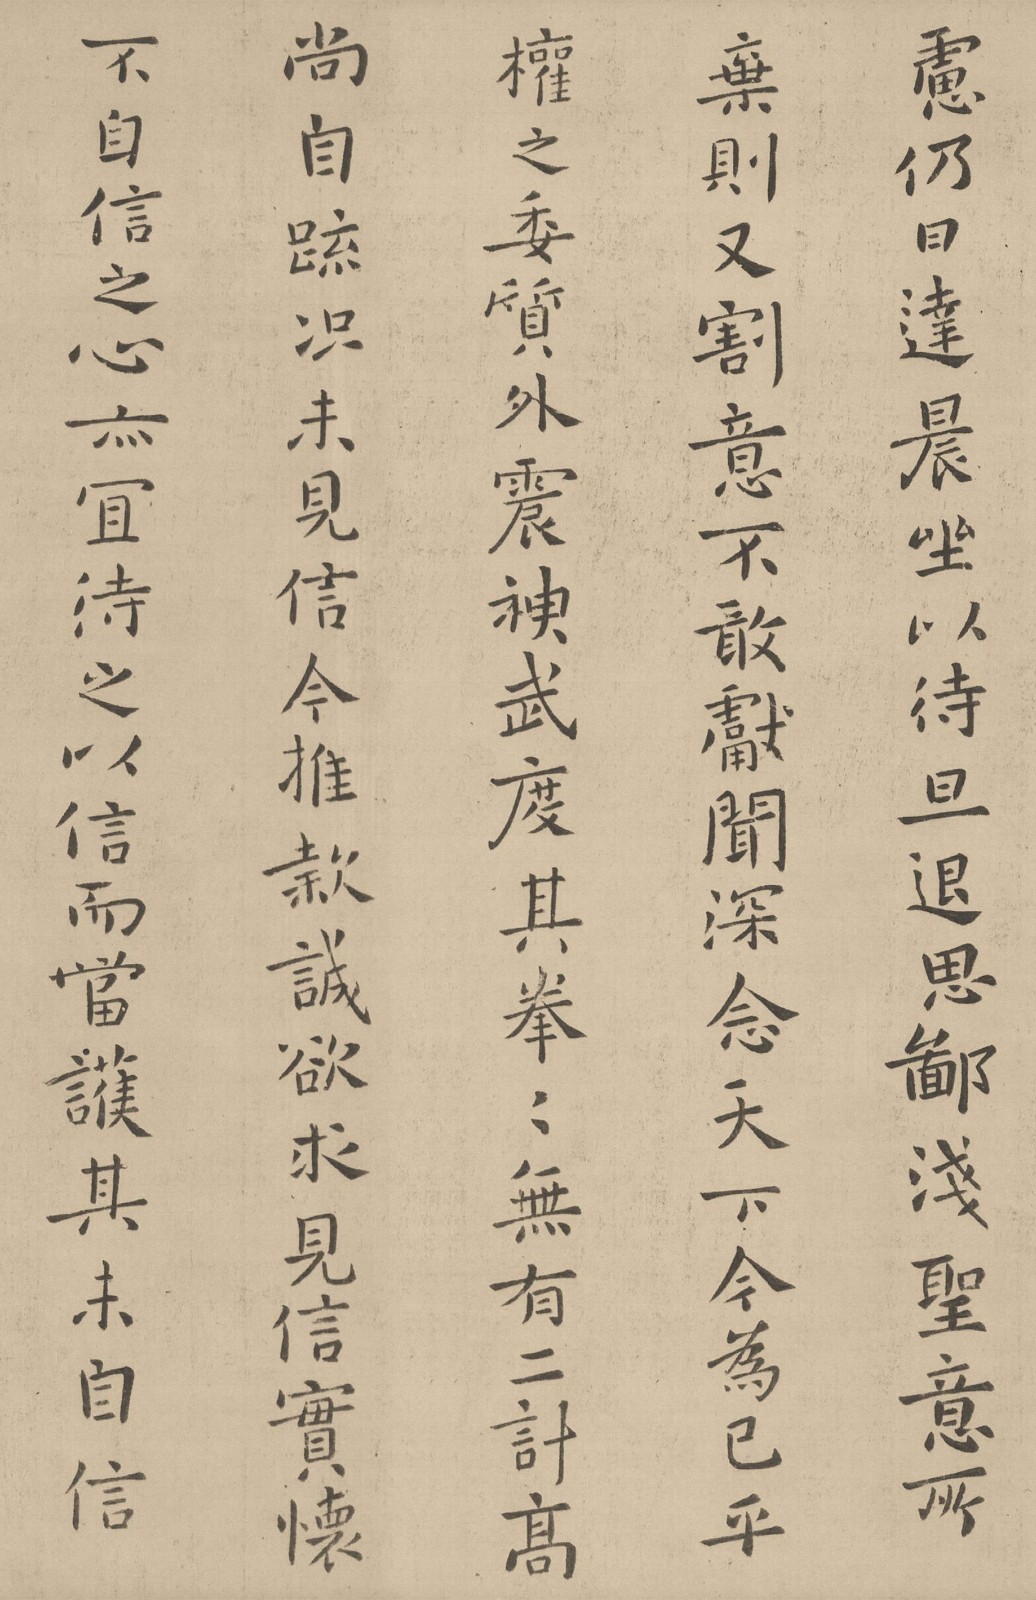 慮仍日達晨坐以待旦退思鄙淺聖意所
棄則又割意不敢獻聞深念天下今為已平
權之委質外震神武度其拳〻無有二計高
尚自疏况未見信今推款誠欲求見信實懷
不自信之心亦宜待之以信而當護其未自信